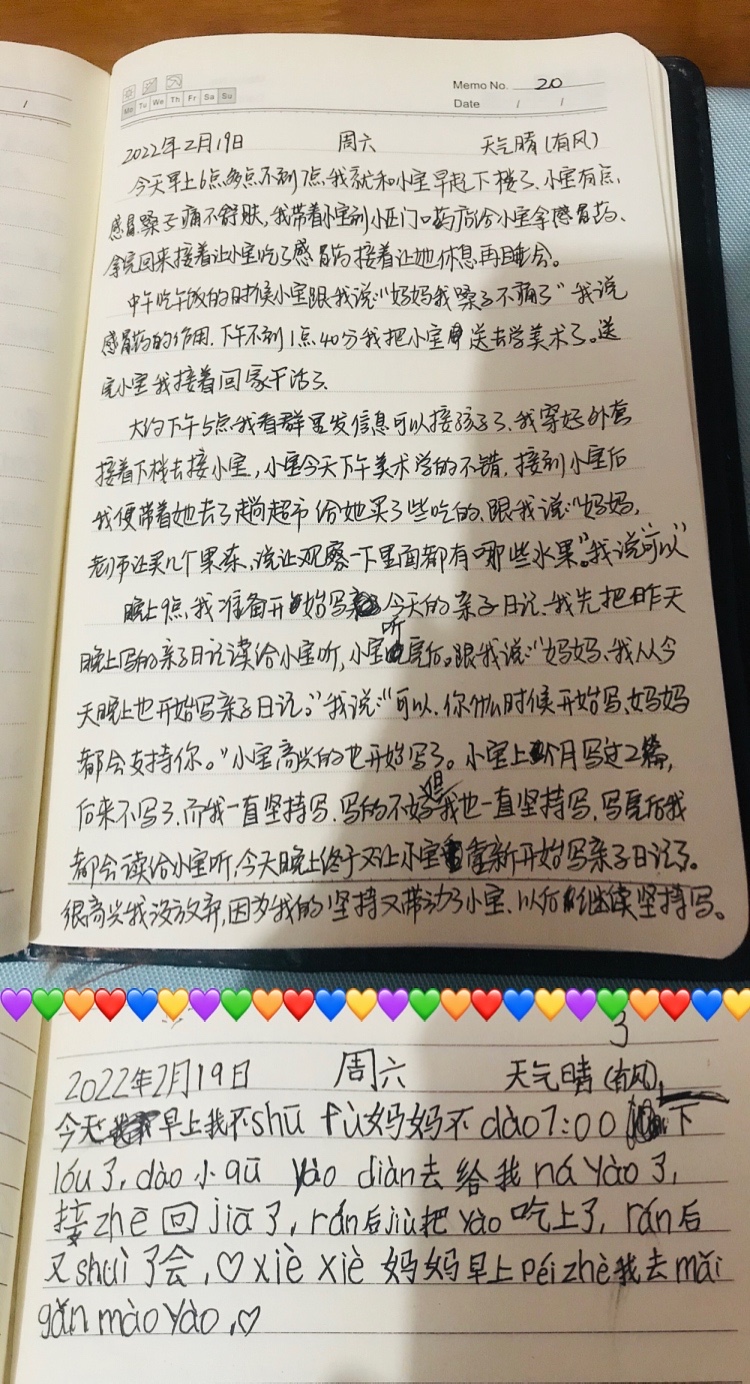 Mo Tu We Th Fr Sa Su
Memo No. 20
Date / /
2022年2月19日 周六 天气晴(有风)
今天早上6点多点不到7点,我就和小宝早起下楼了、小宝有点
感冒嗓子痛不舒肤,我带着小宝到小区门口药店给小宝拿感冒药、
拿完回来接着让小宝吃了感冒药接着让她休息再睡会。
中午吃午饭的时候小宝跟我说:"妈妈我嗓子不痛了"我说
感冒药的作用.下午不到1点40分我把小宝送去学美术了。送
完小宝我接着回家干活了、
大约下午5点我看群里发信息可以接孩子了、我穿好外套
接着下楼去接小宝,小宝今天下午美术学的不错.接到小宝后
我便带着她去了趟超市给她买了些吃的、跟我说:"妈妈,
老师让买几个果冻、说让观察一下里面都有哪些水果"。我说"可以"
晚上9点,我准备开始写今天的亲子日记、我先把昨天
晚上写的亲子日记读给小宝听,小宝听完后。跟我说:"妈妈、我从今
天晚上也开始写亲子日记。"我说:"可以、你什么时候开始写、妈妈
都会支持你。"小宝高兴的也开始写了。小宝上个月写过2篇,
后来不写了.而我一直坚持写.写的不好但我也一直坚持写.写完后我
都会读给小宝听,今天晚上终于又让小宝重新开始写亲子日记了。
很高兴我没放弃,因为我的坚持又带动了小宝、以后继续坚持写。
3
2022年2月19日 周六 天气晴(有风)
今天早上我不shū fù妈妈不dào7:00下
lóu了,dào小qū yào diàn去给我ná yào了,
接zhē回jiā了,rán后jiù把yào吃上了,rán后
又shuì了会,♡xiè xiè妈妈早上péi zhè我去mǎi
gǎn mào yào,♡